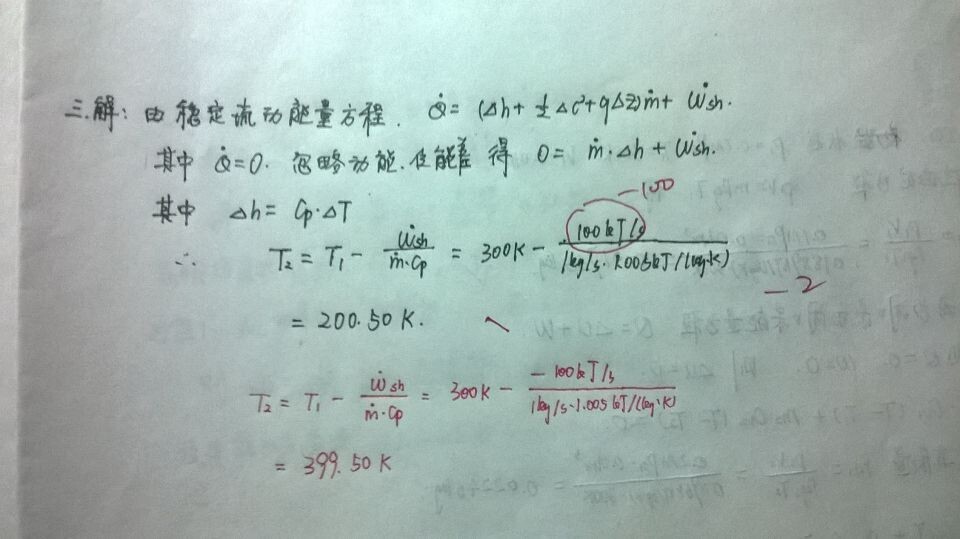 三.解: 由稳定流动能量方程. Q̇ = (Δh + ½Δc²+gΔz)ṁ + Ẇsh.
其中 Q̇=0. 忽略动能.位能差 得 0 = ṁ·Δh + Ẇsh.
其中 Δh = Cp·ΔT
-100
∴ T₂ = T₁ - Ẇsh/(ṁ·Cp) = 300K - (100kJ/s)/(1kg/s·1.005kJ/(kg·K))
-2
= 200.50 K.
T₂ = T₁ - Ẇsh/(ṁ·Cp) = 300K - (-100kJ/s)/(1kg/s·1.005kJ/(kg·K))
= 399.50 K